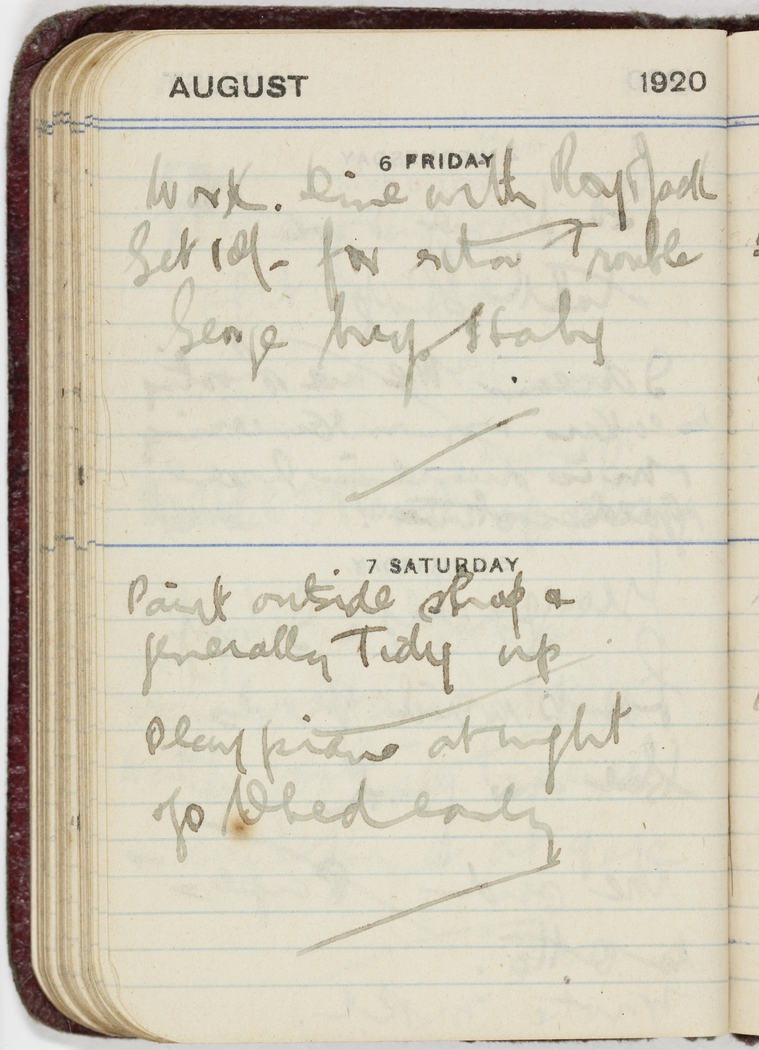 AUGUST 1920
6 FRIDAY
Work. Dine with Roy & Jack
Get 18/- for extra Trouble
George buys
7 SATURDAY
Paint outside shop &
generally Tidy up
Play piano at night
go to bed early